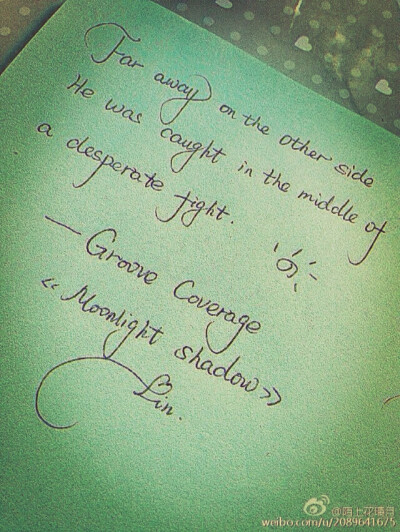 Far away on the other side
He was caught in the middle of
a desperate fight.
—Groove Coverage
《Moonlight shadow》
Lin.
@陌上花璟月
weibo.com/u/2089641675